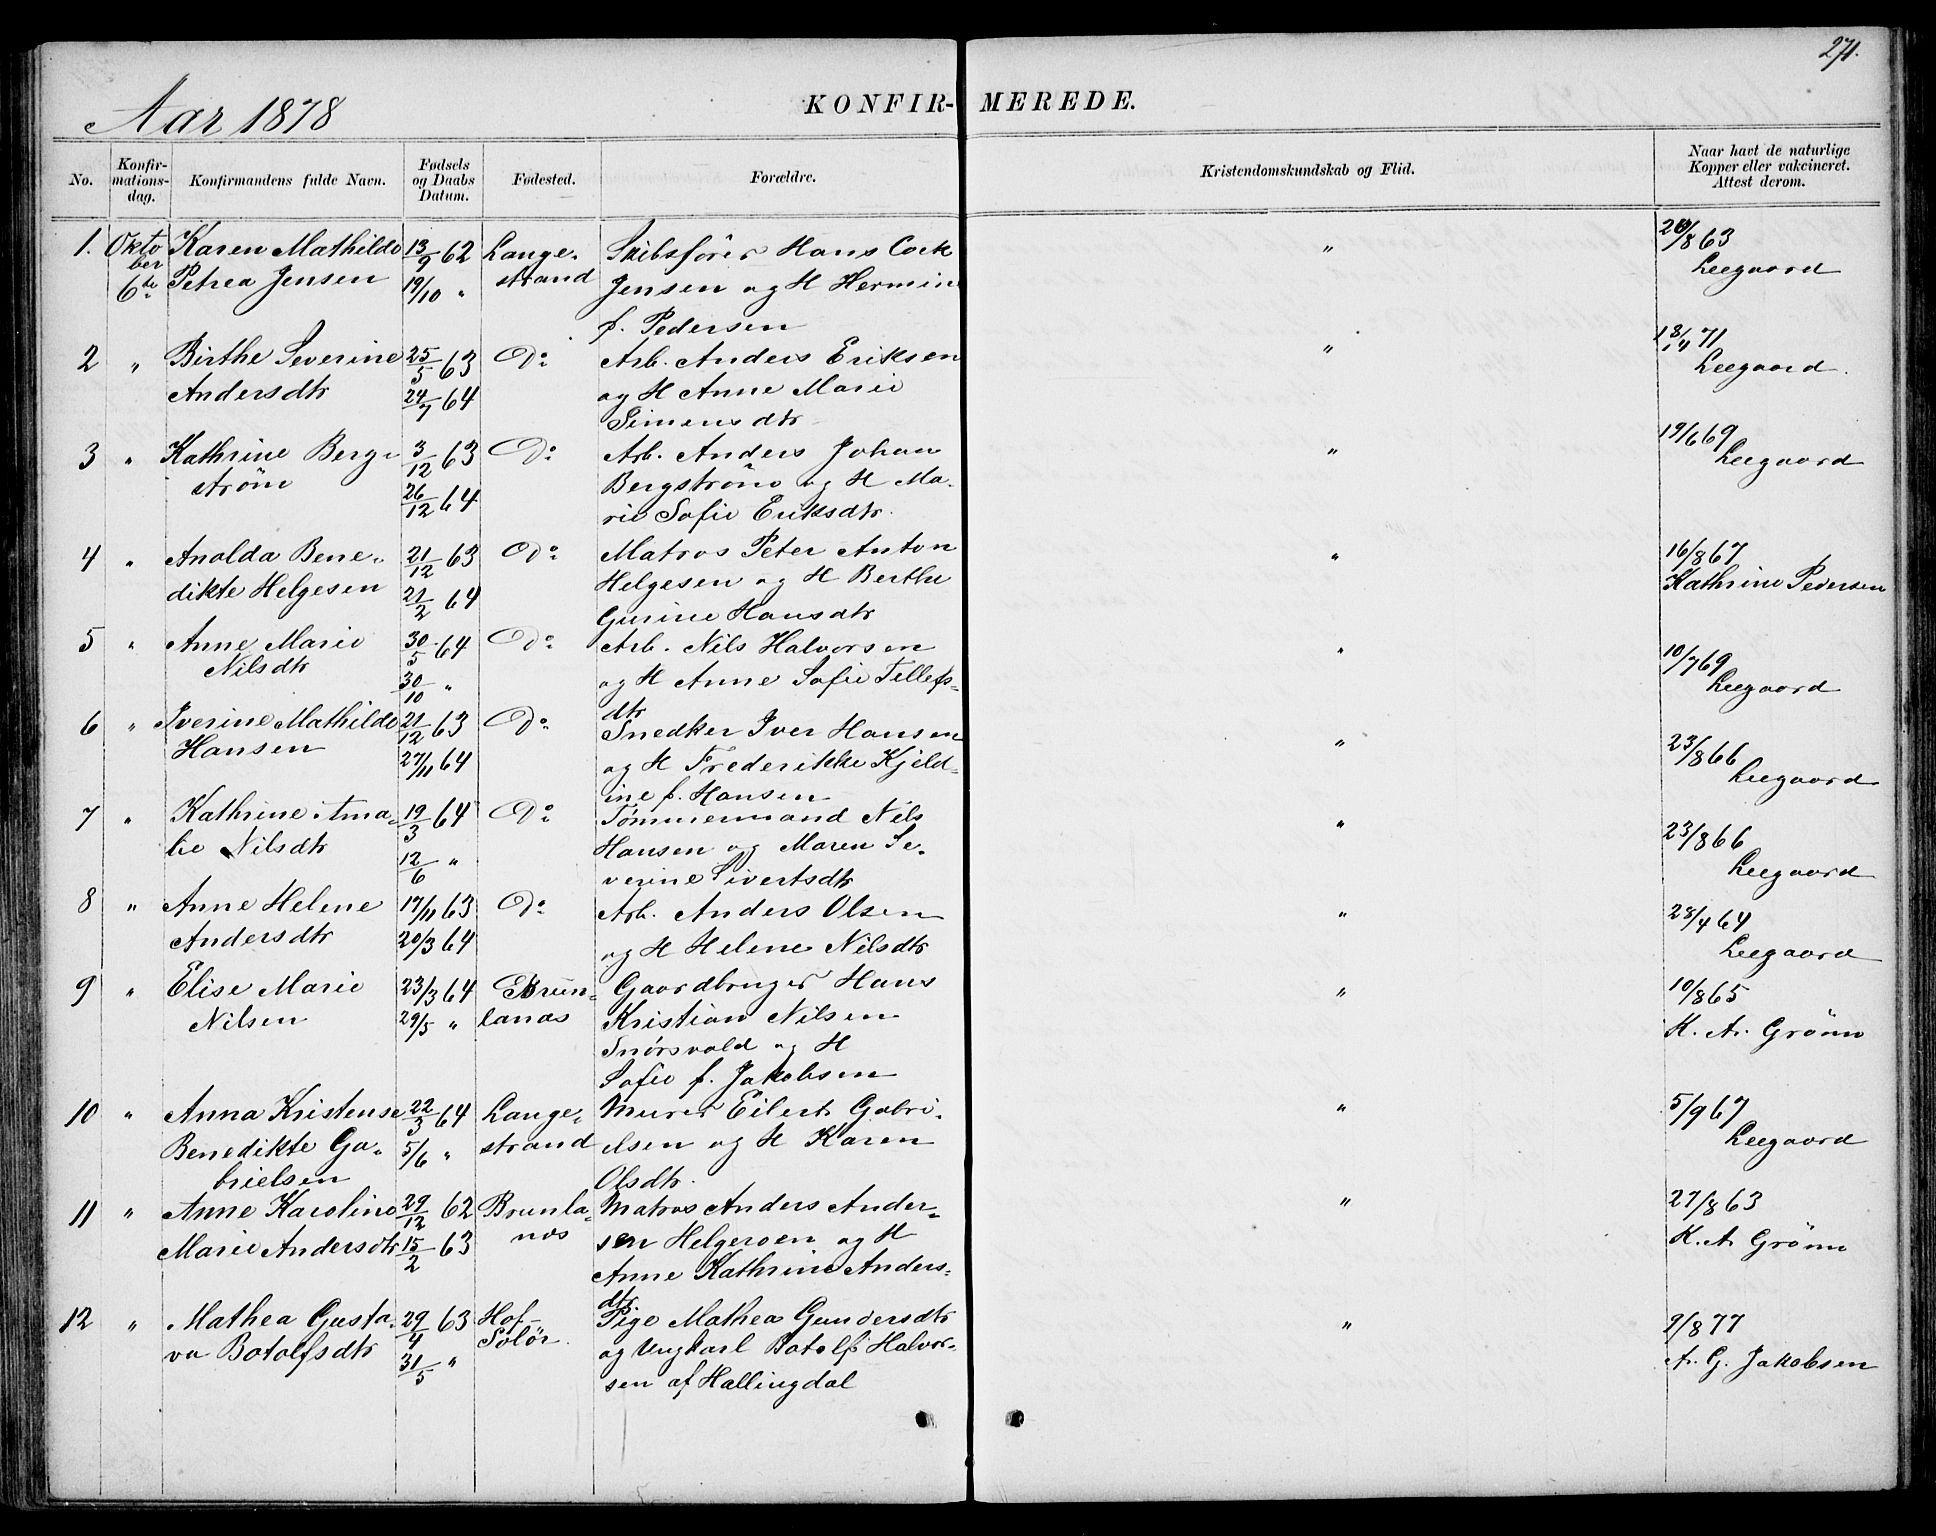 271.
Aar 1878
KONFIR- MEREDE.
No. Konfir-mations-dag. Konfirmandens fulde Navn. Fødsels og Daabs Datum. Fødested. Forældre. Kristendomskundskab og Flid. Naar havt de naturlige Kopper eller vakcineret. Attest derom.
1. Okto Karen Mathilde 13/9 62 Lange- Skibsfører Hans Cock " 26/8 63
ber 6te Petrea Jensen 19/10 " strand Jensen og H Hermine Leegaard
f. Pedersen
2 " Birthe Severine 25/5 63 Do Arb. Anders Eriksen " 18/11 71
Andersdtr 24/7 64 og H Anne Marie Leegaard.
Simensdtr
3 " Kathrine Berg- 3/12 63 Do Arb. Anders Johan " 19/6 69
strøm 26/12 64 Bergstrøm og H Ma- Leegaard
rie Sofie Eriksdtr.
4 " Anolda Bene- 21/12 63 Do Matros Peter Anton " 16/8 67
dikte Helgesen 21/2 64 Helgesen og H Berthe Kathrine Pedersen
Gurine Hansdtr
5 " Anne Marie 30/5 64 Do Arb. Nils Halvorsen " 10/7 69
Nilsdtr 30/10 " og H Anne Sofie Tillefs- Leegaard
dtr
6 " Iverine Mathilde 21/12 63 Do Snedker Iver Hansen " 23/8 66
Hansen 27/11 64 og H Frederikke Kjeld- Leegaard
ine f. Hansen
7 " Kathrine Ama- 19/3 64 Do Tømmermand Nils " 23/8 66
lie Nilsdtr 12/6 " Hansen og Maren Se- Leegaard
verine Sivertsdtr
8 " Anne Helene 17/11 63 Do Arb. Anders Olsen " 28/4 64
Andersdtr 20/3 64 og H Helene Nilsdtr Leegaard
9 " Elise Marie 23/3 64 Brun- Gaardbruger Hans " 10/8 65
Nilsen 29/5 " lanæs Kristian Nilsen K. A. Grønn
Snørsvald og H
Sofie f. Jakobsen
10 " Anna Kristense 22/3 64 Lange- Murer Eilert Gabri- " 5/9 67
Benedikte Ga- 5/6 " strand elsen og H Karen Leegaard
brielsen Olsdtr.
11 " Anne Karoline 29/12 62 Brunla- Matros Anders Ander- " 27/8 63
Marie Andersdtr 15/2 63 næs sen Helgeroen og H K. A. Grønn
Anne Kathrine Anders-
dtr
12 " Mathea Gusta- 29/4 63 Hof- Pige Mathea Gundersdtr " 9/8 77
va Botolfsdtr 31/5 " Solør. og Ungkarl Botolf Halvor- A. G. Jakobsen
sen af Hallingdal